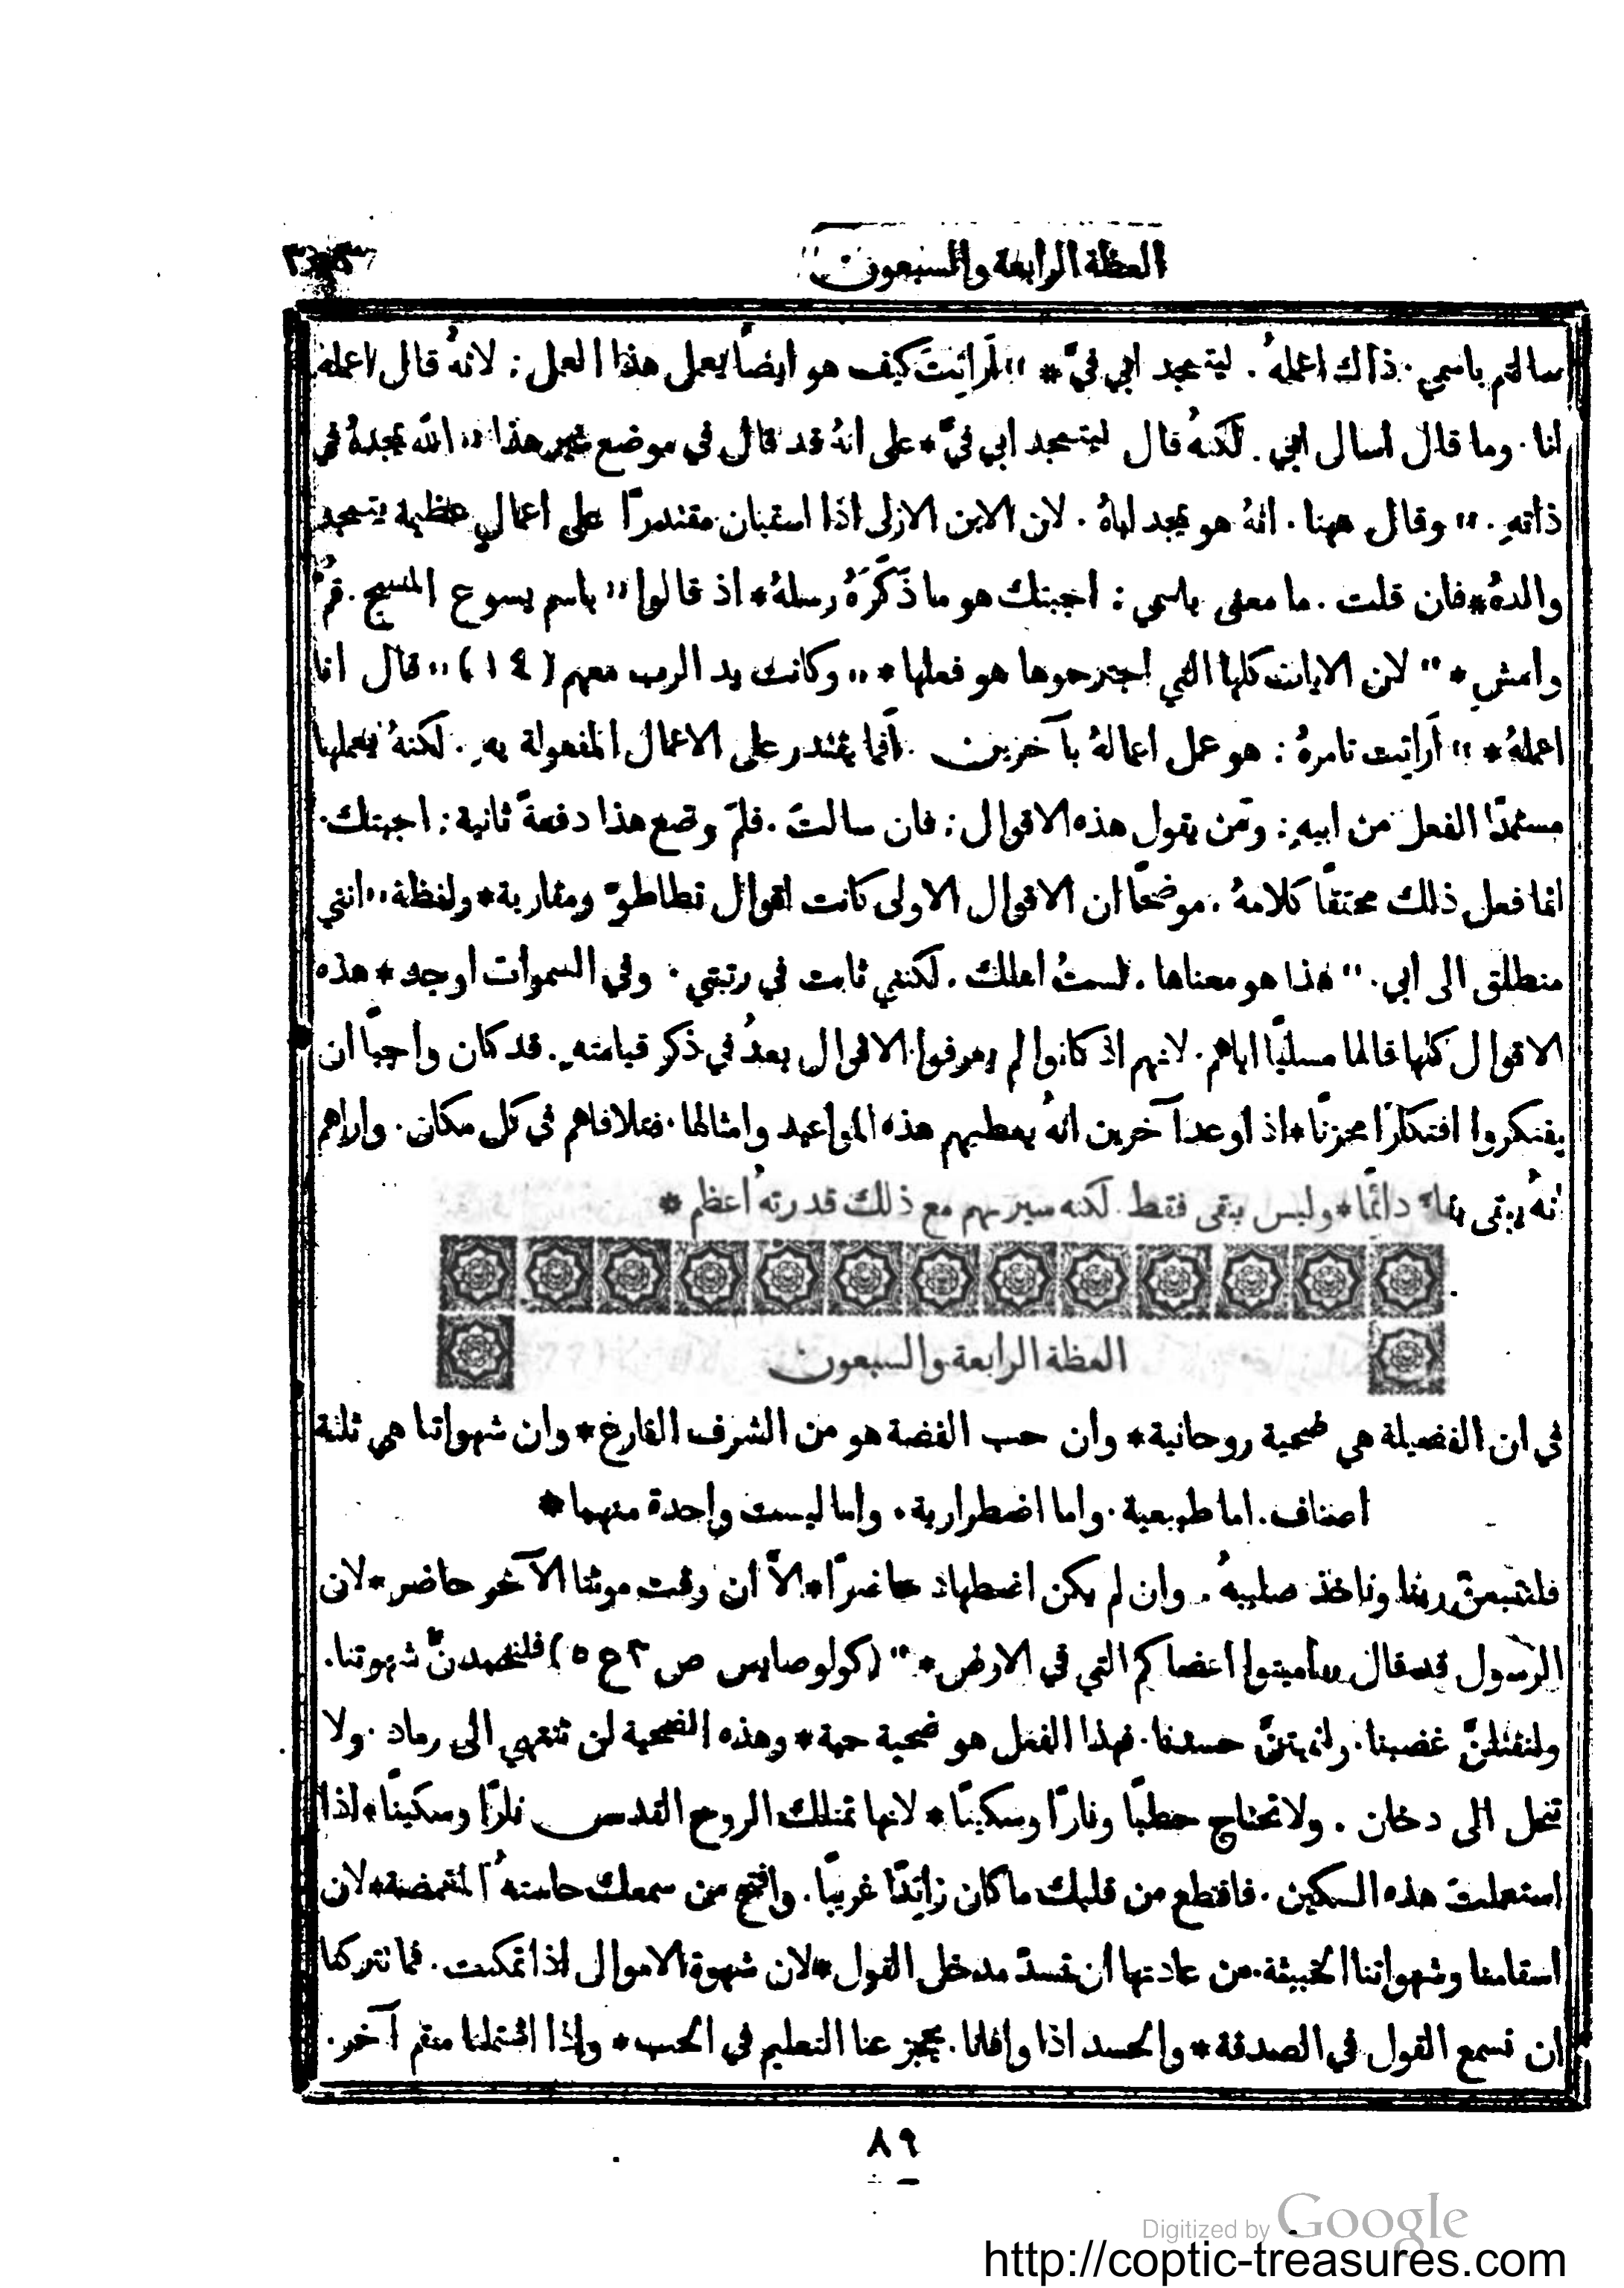 العظة الرابعة والسبعون
سالتم باسمي . ذاك اعملهُ . ليتمجد ابي فيَّ * ״ أَرأَيتَ كيف هو ايضاً يعمل هذا العمل : لانهُ قال اعملهُ
انا . وما قال اسال ابي . لكنهُ قال ليتمجد ابي فيَّ * على انهُ قد قال في موضع غير هذا ״ الله يمجدهُ في
ذاتهِ . ״ وقال ههنا . انهُ هو يمجد اباهُ . لان الابن الازلي اذا استبان مقتدرًا على اعمالٍ عظيمة يتمجد
والدهُ * فان قلت . ما معنى باسمي : اجبتك هو ما ذَكَرَهُ رسلهُ * اذ قالوا ״ باسم يسوع المسيح . قمْ
وامشِ * ״ لان الايات كلها التي اجترحوها هو فعلها * ״ وكانت يد الرب معهم (١٤) ״ قال انا
اعملهُ * ״ أَرأَيت تامرهُ : هو عمل اعمالهُ بآخرين . أَفما يقتدر على الاعمال المفعولة بهِ . لكنهُ يعملها
مستمدًّا الفعل من ابيهِ : ومَن يقول هذه الاقوال : فان سالتَ . فلمَ وضع هذا دفعةً ثانية : اجبتك .
انما فعل ذلك محققًا كلامهُ . موضحًا ان الاقوال الاولى كانت اقوال تطاطوٍّ ومقاربة * ولفظة ״ انني
منطلق الى ابي . ״ هذا هو معناها . لستُ اهلك . لكنني ثابت في رتبتي . وفي السموات اوجد * هذه
الاقوال كلها قالها مسليًّا اياهم . لانهم اذ كانوا لم يعرفوا الاقوال بعدُ في ذكر قيامتهِ . قد كان واجبًا ان
يفتكروا افتكارًا محزنًا * اذ اوعد آخرين انهُ يعطيهم هذه المواعيد وامثالها . فتلافاهم في كل مكان . واراهم
انهُ يبقى بقاءً دائمًا * وليس يبقى فقط . لكنه سيريهم مع ذلك قدرتهُ اعظم *
العظة الرابعة والسبعون
في ان الفضيلة هي ضحية روحانية * وان حب الفضة هو من الشرف الفارغ * وان شهواتنا هي ثلثة
اصناف . اما طبيعية . واما اضطرارية . واما ليست واحدة منهما *
فلنتبعنَّ ربنا وناخذ صليبهُ . وان لم يكن اضطهاد حاضرًا * الاَّ ان وقت موتنا الآخر حاضر * لان
الرسول قد قال ״ اميتوا اعضاكم التي في الارض * ״ (كولوصايس ص ٣ ع ٥) فلنخمدنَّ شهوتنا .
ولنقتلنَّ غضبنا . ولنميتنَّ حسدنا . فهذا الفعل هو ضحية حية * وهذه الضحية لن تنتهي الى رماد . ولا
تنحل الى دخان . ولا تحتاج حطبًا ونارًا وسكينًا * لانها تمتلك الروح القدس نارًا وسكينًا * اذا
استعملتَ هذه السكين . فاقطع من قلبك ما كان زائِدًا غريبًا . وافتح من سمعك حاستهُ المغمضة * لان
اسقامنا وشهواتنا الخبيثة . من عادتها ان تسدّ مدخل القول * لان شهوة الاموال اذا تمكنت . فما تتركنا
ان نسمع القول في الصدقة * والحسد اذا وافانا . يحجز عنا التعليم في الحب * واذا اشتملنا سقم آخر .
٨٩
Digitized by Google
http://coptic-treasures.com